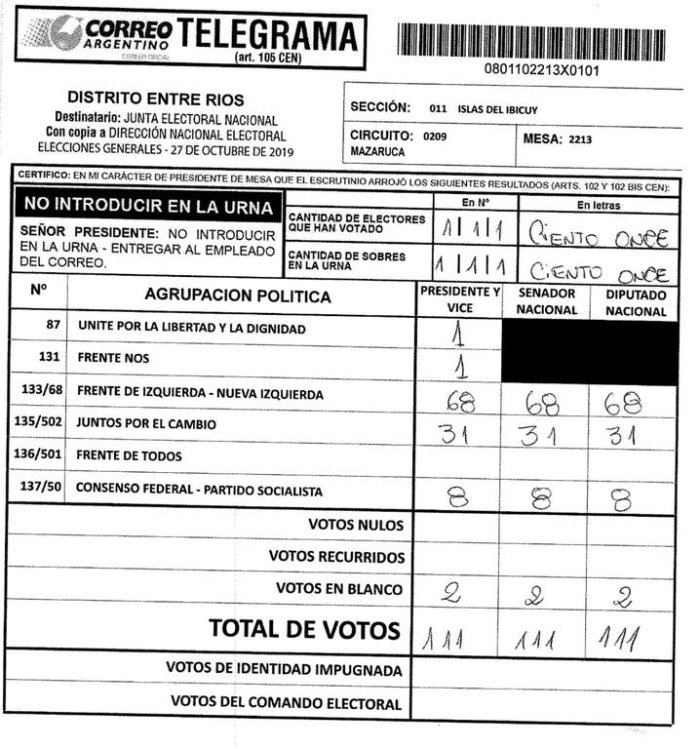 CORREO ARGENTINO
CORREO OFICIAL
TELEGRAMA
(art. 105 CEN)
0801102213X0101
DISTRITO ENTRE RIOS
Destinatario: JUNTA ELECTORAL NACIONAL
Con copia a DIRECCIÓN NACIONAL ELECTORAL
ELECCIONES GENERALES - 27 DE OCTUBRE DE 2019
SECCIÓN: 011 ISLAS DEL IBICUY
CIRCUITO: 0209 MESA: 2213
MAZARUCA
CERTIFICO: EN MI CARÁCTER DE PRESIDENTE DE MESA QUE EL ESCRUTINIO ARROJÓ LOS SIGUIENTES RESULTADOS (ARTS. 102 Y 102 BIS CEN):
NO INTRODUCIR EN LA URNA
SEÑOR PRESIDENTE: NO INTRODUCIR
EN LA URNA - ENTREGAR AL EMPLEADO
DEL CORREO.
En Nº En letras
CANTIDAD DE ELECTORES
QUE HAN VOTADO 111 CIENTO ONCE
CANTIDAD DE SOBRES
EN LA URNA 111 CIENTO ONCE
Nº AGRUPACION POLITICA PRESIDENTE Y VICE SENADOR NACIONAL DIPUTADO NACIONAL
87 UNITE POR LA LIBERTAD Y LA DIGNIDAD 1
131 FRENTE NOS 1
133/68 FRENTE DE IZQUIERDA - NUEVA IZQUIERDA 68 68 68
135/502 JUNTOS POR EL CAMBIO 31 31 31
136/501 FRENTE DE TODOS
137/50 CONSENSO FEDERAL - PARTIDO SOCIALISTA 8 8 8
VOTOS NULOS
VOTOS RECURRIDOS
VOTOS EN BLANCO 2 2 2
TOTAL DE VOTOS 111 111 111
VOTOS DE IDENTIDAD IMPUGNADA
VOTOS DEL COMANDO ELECTORAL